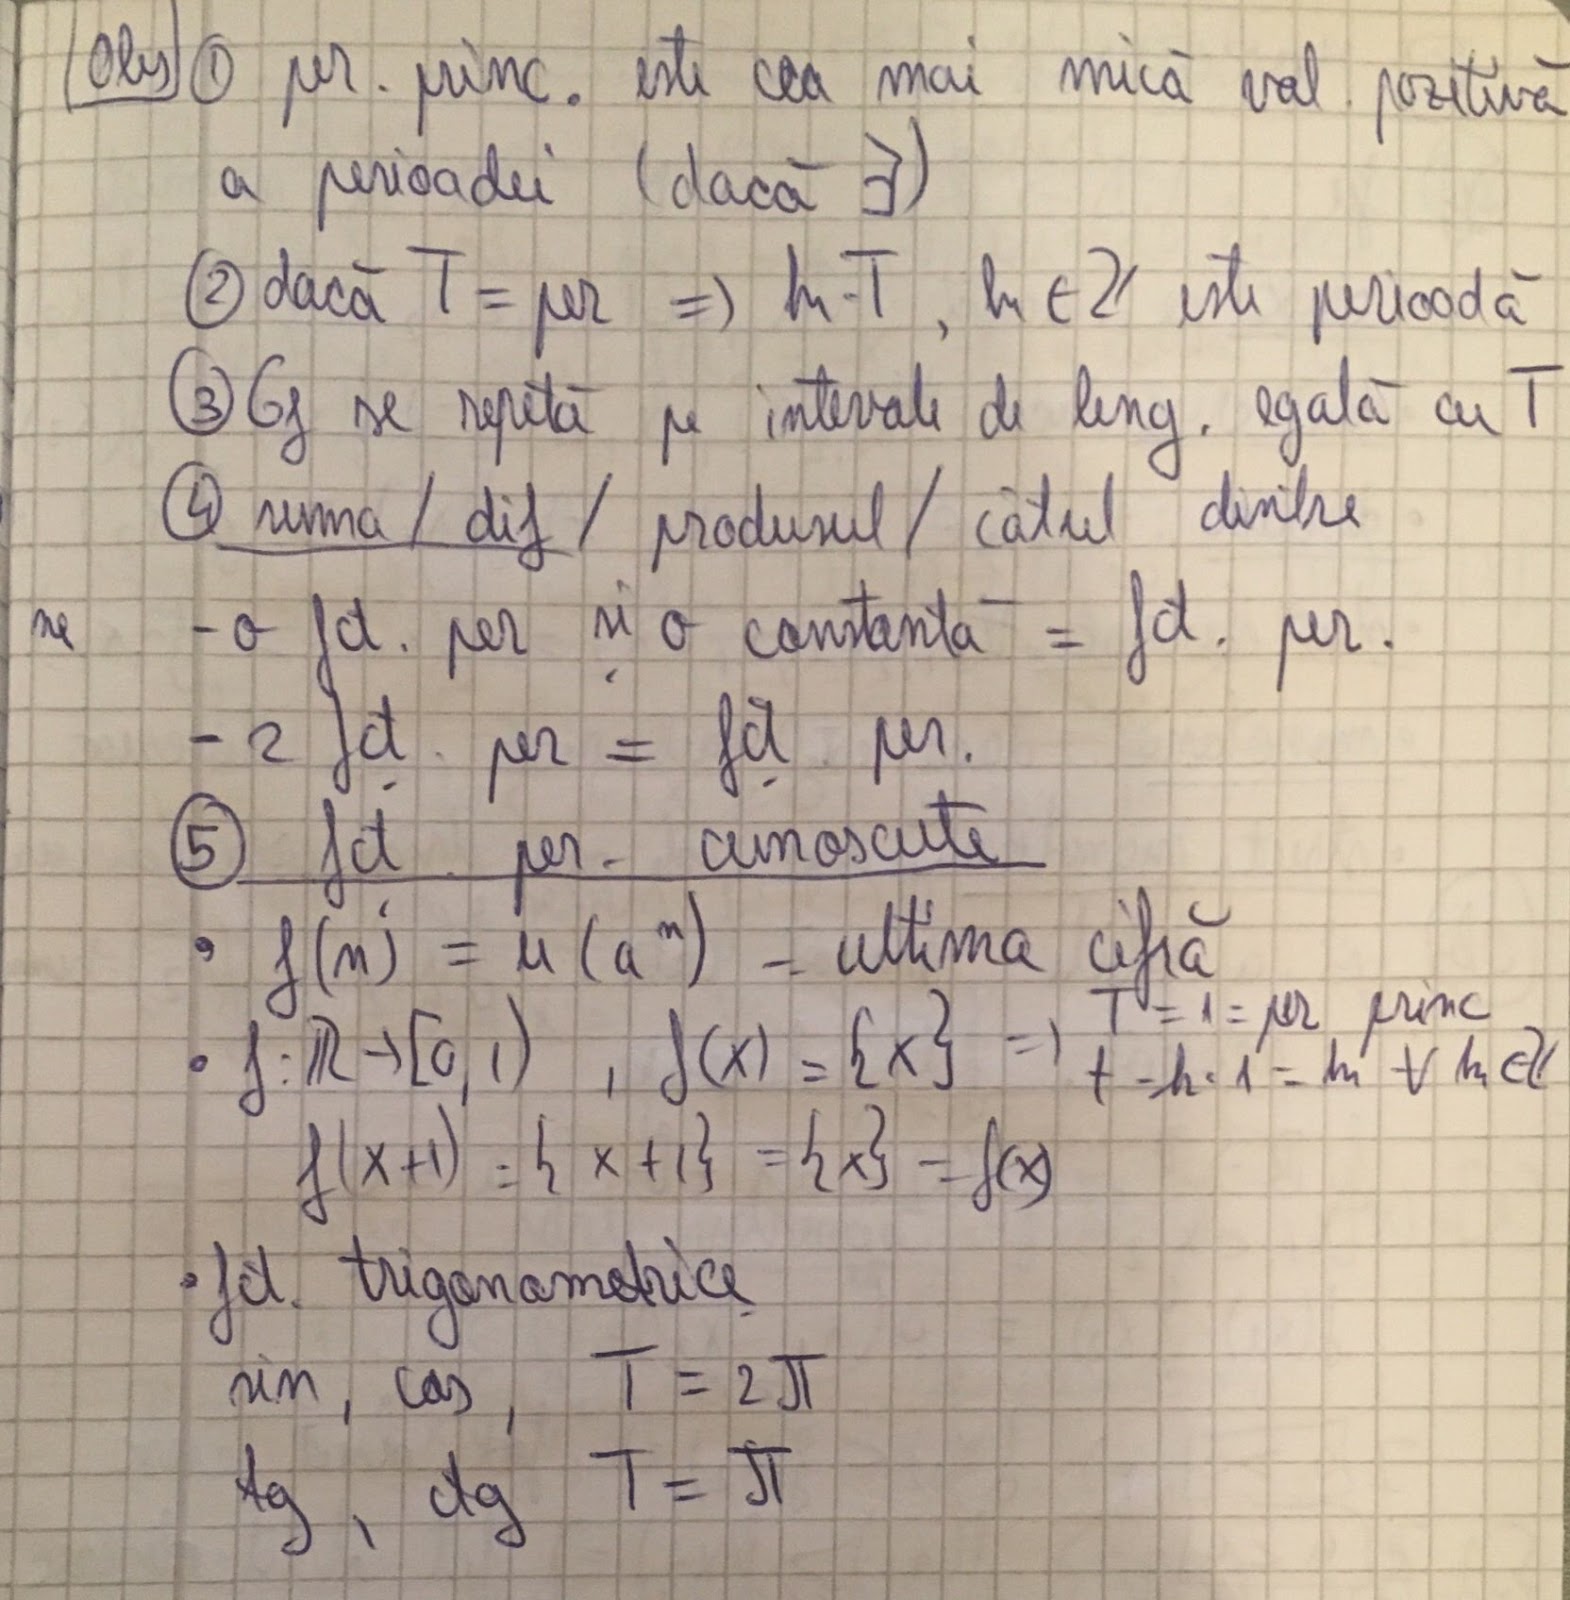 Obs ① per. princ. este cea mai mică val. pozitivă
a perioadei (dacă ∃)
② dacă T = per => k·T, k∈ℤ este perioadă
③ Gf se repetă pe intervale de lung. egală cu T
④ suma / dif / produsul / câtul dintre
se - o fct. per și o constantă = fct. per.
- 2 fct. per = fct. per.
⑤ fct. per. cunoscute
• f(n) = u(aⁿ) - ultima cifră
• f: ℝ→[0,1), f(x) = {x} => T = 1 = per princ
t = k·1 = k ∀ k∈ℤ
f(x+1) = {x+1} = {x} = f(x)
• fct. trigonometrice
sin, cos, T = 2π
tg, ctg T = π